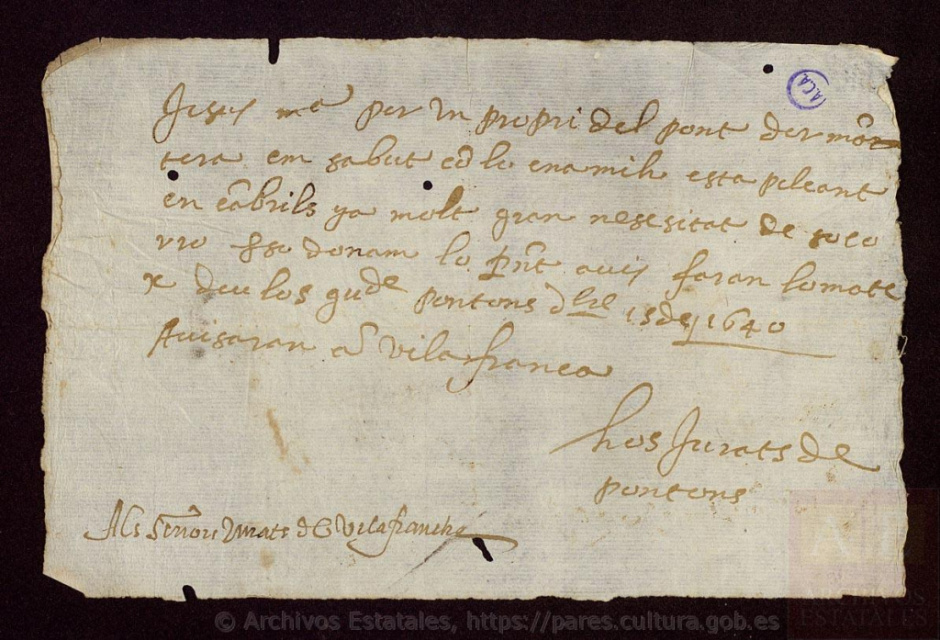 Jesus ma per un propri del pont der mõr
tera em sabut cõ lo enamih esta peleant
en cãbrils ya molt gran nesesitat de soco
rro hso donam lo pñt avis faran lo mate
x deu los gude pontons dbre 15 de 1640
Avisaran a Vilafranca
hos Jurats de
pontons
Als señors Jurats de Vilafrancha
ACA
© Archivos Estatales, https://pares.cultura.gob.es
ARCHIVOS
ESTATALES